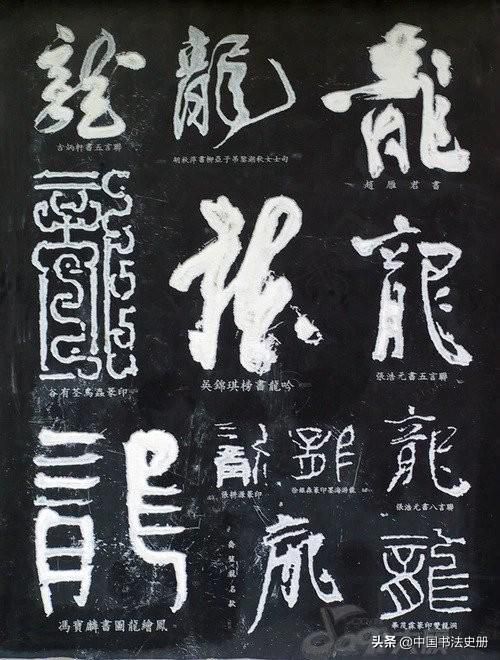 龍
吉炳軒書五言聯
龍
胡秋萍書柳亞子弔鑒湖秋女士句
龍
趙雁君書
龍
谷有荃鳥蟲篆印
龍
吳錦琪榜書龍吟
龍
張浩元書五言聯
龍
馮寶麟書圖龍繪鳳
龍
張耕源篆印
龍
徐銀森篆印墨海游龍
龍
龍
張浩元書八言聯
龍
華茂霖篆印雙龍洞
头条 @中国书法史册